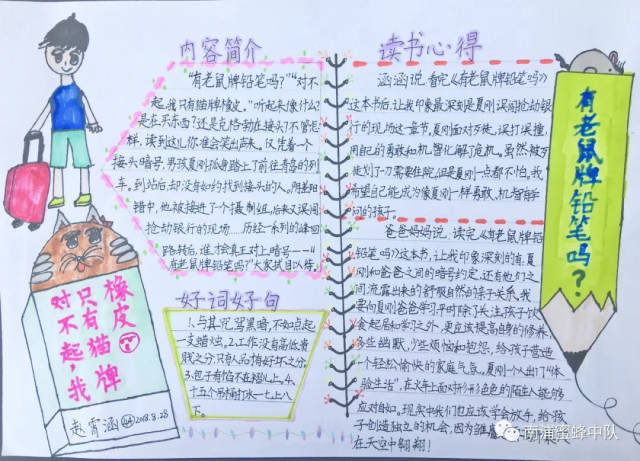 内容简介
“有老鼠牌铅笔吗？”“对不
起,我只有猫牌橡皮。”听起来像什么?
是在买东西?还是克格勃在接头?不管怎
样,读到这儿,你准会笑出声来。仅凭着一个
接头暗号,男孩夏刚孤身踏上了前往青岛的列
车。到站后,却没有如约找到接头的人。阴差阳
错中,他被接进了一个摄制组,后来又误闯
抢动银行的现场……历经一系列的峰回
路转后,谁才会真正对上暗号——“
有老鼠牌铅笔吗？”大家拭目以待。
好词好句
1.与其咒骂黑暗,不如点起
一支蜡烛。2.工作没有高低贵
贱之分,只有人品有好坏之分。
3.包子有馅不在褶儿上。4.
十五个吊桶打水一七上八
下。
读书心得
涵涵说:看完《有老鼠牌铅笔吗》
这本书后,让我印象最深刻是夏刚误闯抢劫银
行的现场这一章节。夏刚面对歹徒,误打误撞,
用自己的勇敢和机智化解了危机。虽然被歹
徒划了一刀需要住院,但是夏刚一点都不怕。我
希望自己能成为像夏刚一样勇敢、机智有学
问的孩子。
爸爸妈妈说:读完《有老鼠牌铅
铅笔吗?》这本书,让我印象深刻的有夏
刚和爸爸之间的暗号约定,还有他们之
间流露出来的舒服自然的亲子关系。我
要向夏刚爸爸学习,平时除了关注孩子饮
食起居和学习之外,更应该提高自身的修养。
多些幽默,少些烦恼和抱怨,给孩子营造
一个轻松愉快的家庭气氛。夏刚一个人出门“体
验生活”,在火车上面对形形色色的陌生人能够
应对自如。现实中我们也应该学会放手,给孩
子创造独立的机会,因为雏鹰
在天空中翱翔！
有老鼠牌铅笔吗？
橡皮
只有猫牌
对不起，我
赵霄涵 2018.8.28
南浦蜜蜂中队